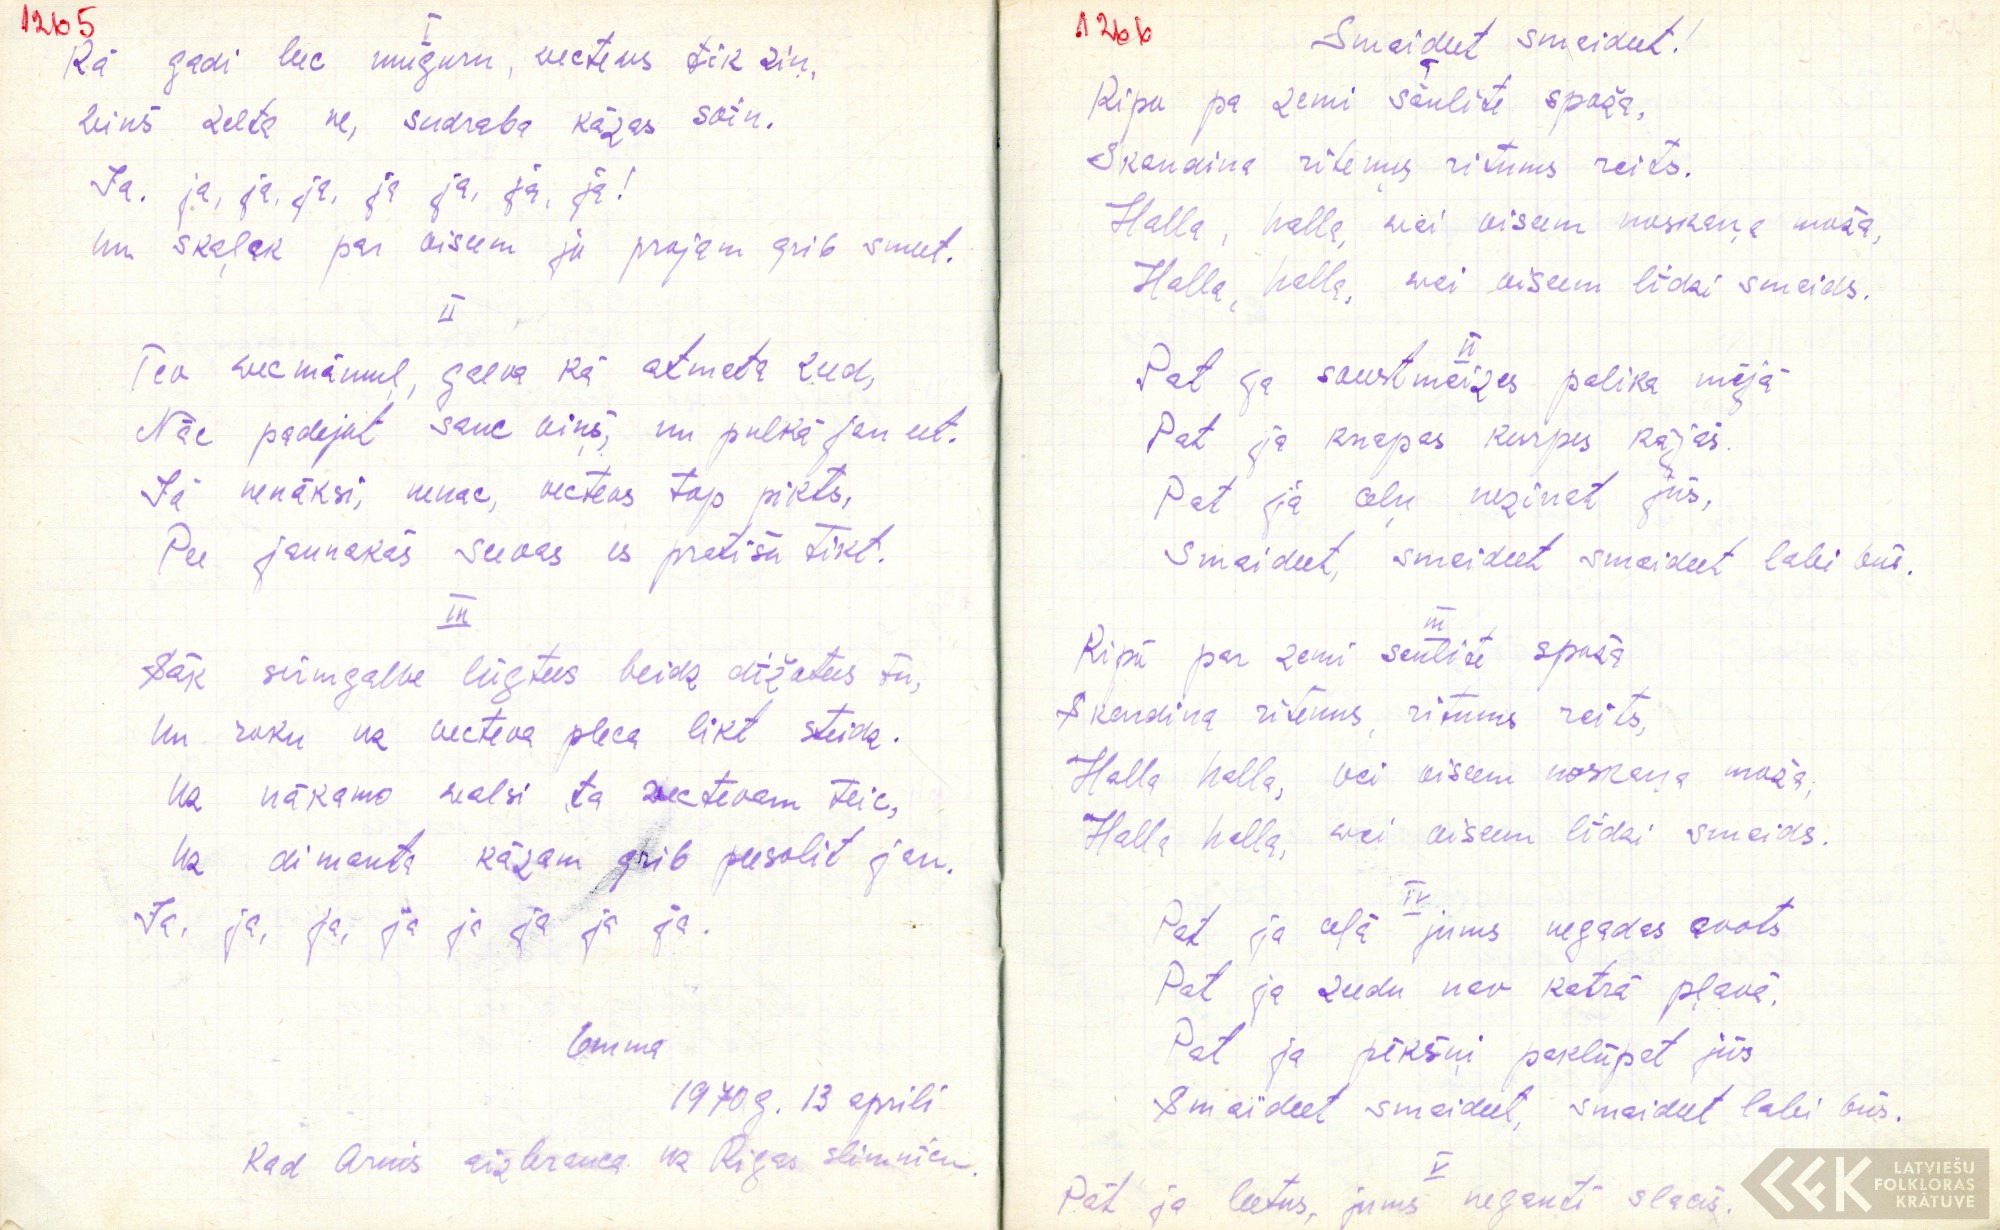 1265
I
Kā gadi lec mugurn, vectevs tik zin,
Viņš zelta ne, sudraba kāzas svin.
Ja. ja, ja, ja, ja ja, ja, ja!
Un skaļak par viseem jo projam grib smeet.
II
Tev vecmāmuļ, galva kā atmatā zeed,
Nāc padejot sauc viņš, un pulkā jau eet.
Jā nenāksi, nenac, vectevs top pikts,
Pee jaunakās seevas es pratišu tikt.
III
Sāk sirmgalve lūgtees beidz dižotees tu,
Un roku uz vecteva pleca likt steidz.
Uz nākamo valsi ta vectevam teic,
Uz dimanta kāzam grib peesolit jau.
Ja, ja, ja, ja ja ja ja ja.
Emma
1970g. 13 aprili
Kad Arvis aizbrauca uz Rigas slimnicu.
1266
Smaideet smaideet!
I
Ripo pa zemi saulite spoža,
Skandina ritenus ritums raits.
Halla, halla, vai viseem noskaņa moža,
Halla, halla, vai viseem lidzi smaids.
II
Pat ja sveestmaizes palika mājā
Pat ja knapas kurpes kājās.
Pat jā ceļu nezinat jūs,
Smaideet, smaideet smaideet labi būs.
III
Ripo par zemi saulite spoža
Skandina ritenus, ritums raits,
Halla halla, vai viseem noskaņa moža,
Halla halla, vai viseem lidzi smaids.
IV
Pat ja ceļā jums negadas avots
Pat ja zeedu nav katrā pļavā.
Pat ja pēkšņi paklūpat jūs
Smaideet smaideet, smaideet labi būs.
V
Pat ja leetus, jums neganti slacis.
LATVIEŠU
FOLKLORAS
KRĀTUVE